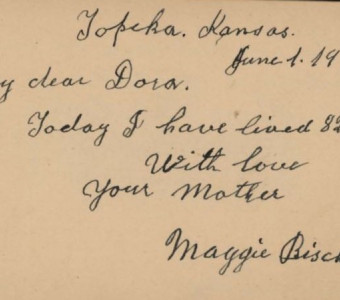 Topeka. Kansas.
June 1. 19
y dear Dora.
Today I have lived 82
With love
Your Mother
Maggie Bisch